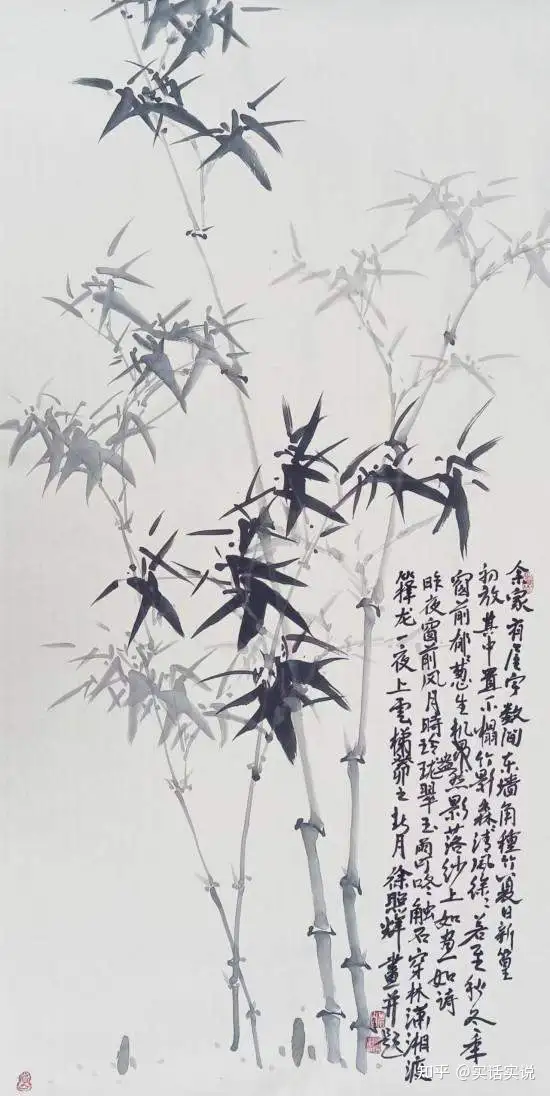 余家有屋宇数间东墙角種竹夏日新篁
初放其中置小榻竹影森〻清风徐〻若至秋冬季
窗前郁葱生机昂然影落纱上如画一如诗
昨夜窗前风月時玲珑翠玉雨叮咚触石穿林潇湘渡
箨龙一夜上雲梯之月徐照辉畫并题
知乎 @实话实说